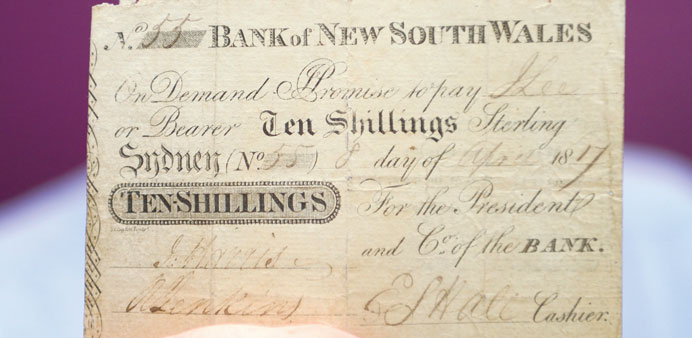 No. 55 BANK of NEW SOUTH WALES
On Demand I Promise to pay I Lee
or Bearer Ten Shillings Sterling
Sydney (No. 55) 8 day of April 1817
TEN-SHILLINGS
For the President
and Co. of the BANK.
J. Harris
R Jenkins
E S Hall Cashier.